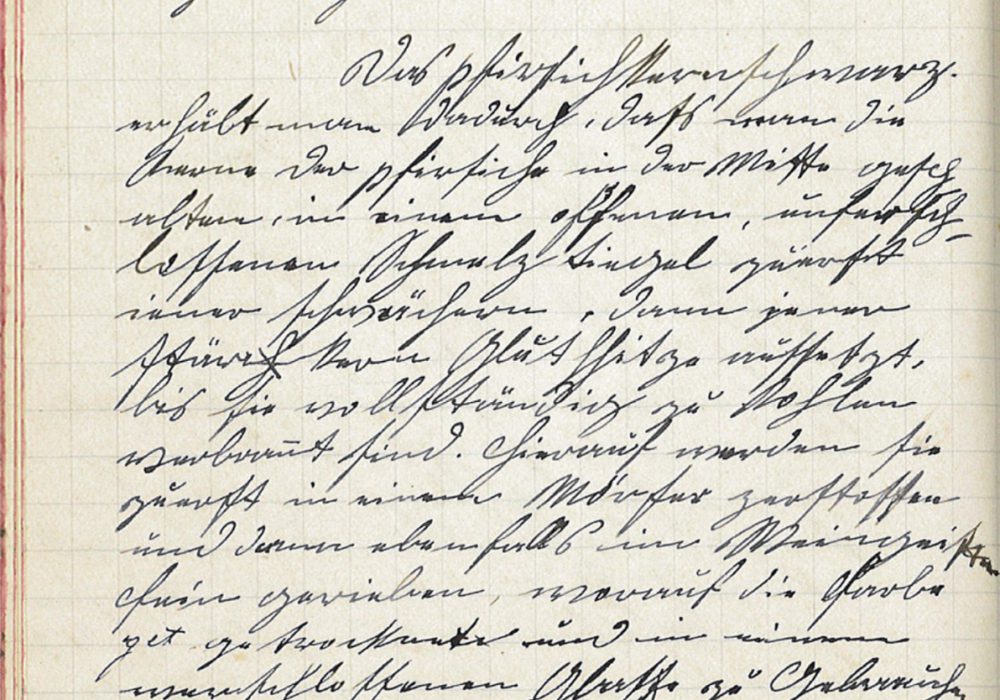 Das Pfirsichkernschwarz.
erhält man dadurch, dass man die
Kerne der Pfirsiche in der Mitte gesp
alten, in einem offenen, unversch-
lossenen Schmelztiegel zuerst
einer schwächern, dann jener
stärkkern Gluthhitze aussetzt,
bis sie vollständig zu Kohlen
verbrannt sind. Hierauf werden sie
zuerst in einem Mörser zerstossen
und dann ebenfalls im Weingeiste
fein gerieben, worauf die Farbe
getrocknet und in einem
verschlossenen Glasse zu Gebrauche